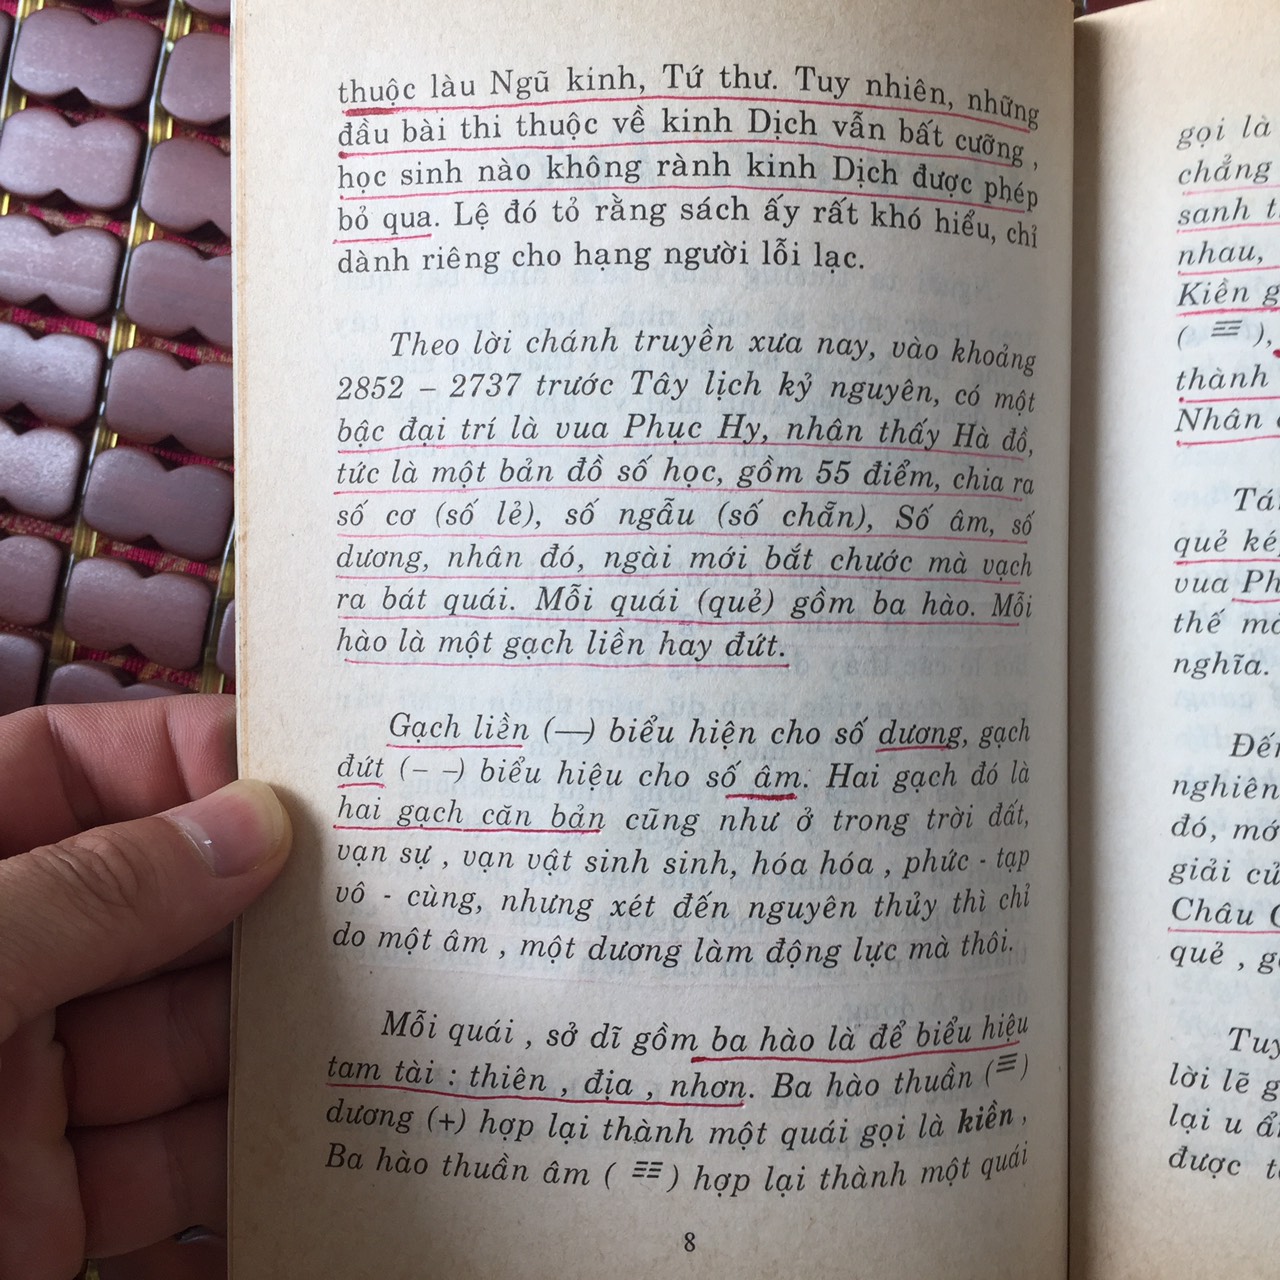 thuộc làu Ngũ kinh, Tứ thư. Tuy nhiên, những
đầu bài thi thuộc về kinh Dịch vẫn bất cưỡng ,
học sinh nào không rành kinh Dịch được phép
bỏ qua. Lệ đó tỏ rằng sách ấy rất khó hiểu, chỉ
dành riêng cho hạng người lỗi lạc.
Theo lời chánh truyền xưa nay, vào khoảng
2852 – 2737 trước Tây lịch kỷ nguyên, có một
bậc đại trí là vua Phục Hy, nhân thấy Hà đồ,
tức là một bản đồ số học, gồm 55 điểm, chia ra
số cơ (số lẻ), số ngẫu (số chẵn), Số âm, số
dương, nhân đó, ngài mới bắt chước mà vạch
ra bát quái. Mỗi quái (quẻ) gồm ba hào. Mỗi
hào là một gạch liền hay đứt.
Gạch liền (—) biểu hiện cho số dương, gạch
đứt (– –) biểu hiệu cho số âm. Hai gạch đó là
hai gạch căn bản cũng như ở trong trời đất,
vạn sự , vạn vật sinh sinh, hóa hóa , phức - tạp
vô - cùng, nhưng xét đến nguyên thủy thì chỉ
do một âm , một dương làm động lực mà thôi.
Mỗi quái , sở dĩ gồm ba hào là để biểu hiệu
tam tài : thiên , địa , nhơn. Ba hào thuần (☰)
dương (+) hợp lại thành một quái gọi là kiền ,
Ba hào thuần âm ( ☷ ) hợp lại thành một quái
8
gọi là
chẳng
sanh
nhau,
Kiền
( ☷ ),
thành
Nhân
quẻ
vua
thế
nghĩa.
nghiên
đó,
giải
Châu
quẻ ,
lời lẽ
lại u
được